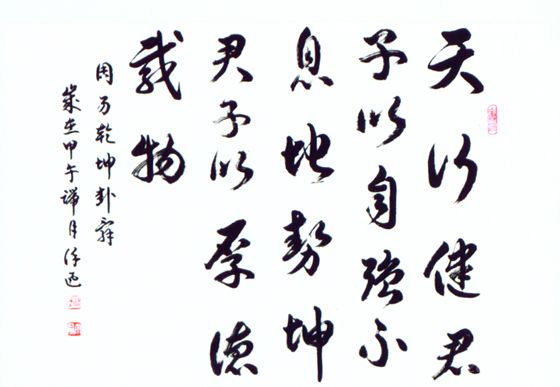 天行健君
子以自強不
息地勢坤
君子以厚德
載物
周易乾坤卦辭
歲在甲午端月